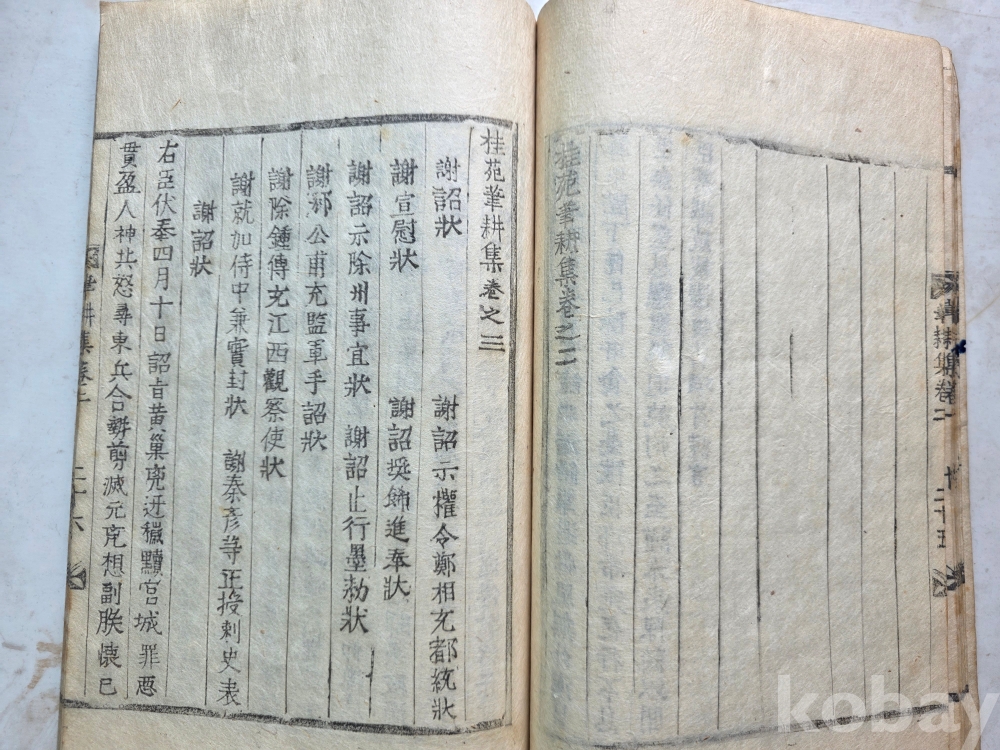 桂苑筆耕集卷之二
筆耕集卷二
二十五
桂苑筆耕集卷之三
謝詔狀 謝詔示權令鄭相充都統狀
謝宣慰狀 謝詔奬飾進奉狀
謝詔示除州事宜狀 謝詔止行墨勅狀
謝郄公甫充監軍手詔狀
謝除鍾傳充江西觀察使狀
謝就加侍中兼實封狀 謝秦彦等正授刺史表
謝詔狀
右臣伏奉四月十日詔旨黃巢兇逆穢黷宮城罪惡
貫盈人神共怒尋東兵合勢剪滅元兇想副朕懷已
筆耕集卷三
二十六
kobay